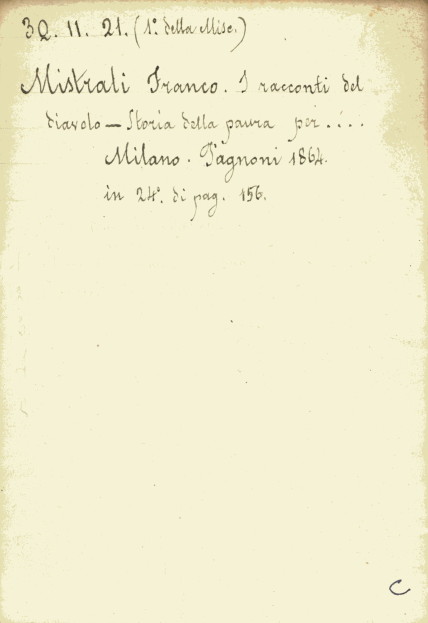 3Q. 11. 21. (1º della Misc.)
Mistrali Franco. I racconti del
diavolo — Storia della paura per . . . .
Milano. Pagnoni 1864.
in 24º. di pag. 156.
C